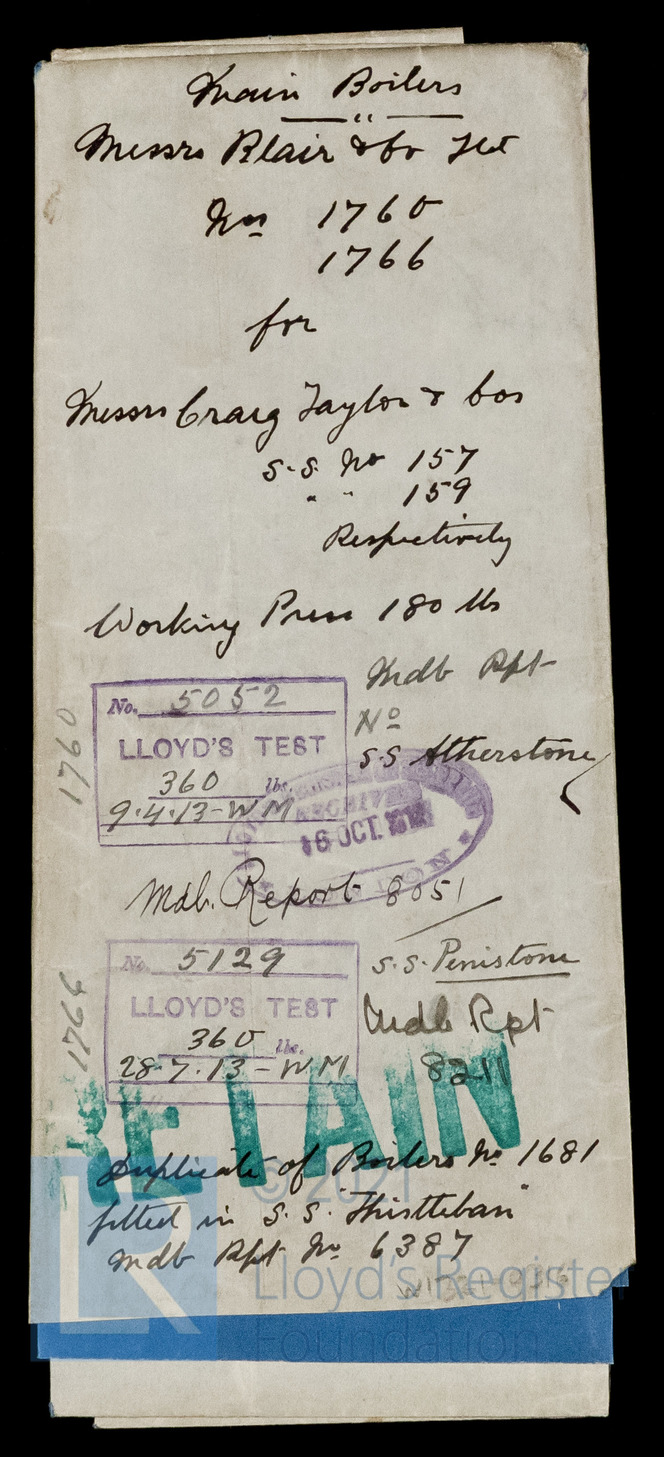 Main Boilers
"
Messrs Blair & Co Ltd
Nos 1760
1766
for
Messrs Craig Taylor & Cos
S.S. No 157
" " 159
Respectively
Working Press 180 lbs
Mdb Rpt
No
S.S Atherstone
1760
No. 5052
LLOYD'S TEST
360 lbs.
9.4.13-WM
RECEIVED
16 OCT.
Mdb. Report 8051
1766
No. 5129
LLOYD'S TEST
360 lbs.
28.7.13-WM
S.S. Penistone
Mdb Rpt
8211
RETAIN
Duplicate of Boilers No 1681
fitted in S.S. "Thistleban"
Mdb Rpt No 6387
© 2021
LR
Lloyd's Register
Foundation